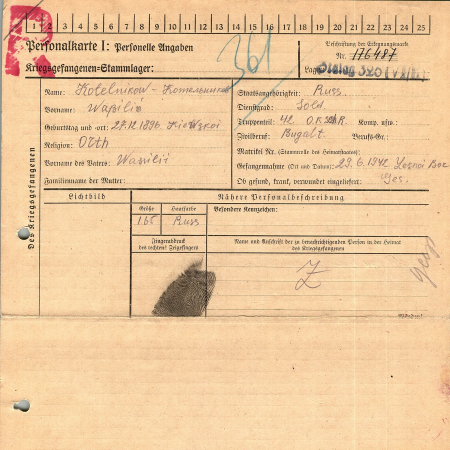 1 2 3 4 5 6 7 8 9 10 11 12 13 14 15 16 17 18 19 20 21 22 23 24 25
Personalkarte I: Personelle Angaben
361
Beschriftung der Erkennungsmarke
Nr. 176487
Kriegsgefangenen-Stammlager:
Lager: Stalag 326 (VI/K)
Des Kriegsgefangenen
Name: Kotelnikow - Котельников
Staatsangehörigkeit: Russ.
Vorname: Waßilii
Dienstgrad: Sold.
Truppenteil: 42. Komp. usw.:
Geburtstag und -ort: 27.12.1896
Zivilberuf: Bugalt. Berufs-Gr.:
Religion: Orth
Matrikel Nr. (Stammrolle des Heimatstaates):
Vorname des Vaters: Wassilii
Gefangennahme (Ort und Datum): 29.6.1942
Familienname der Mutter:
Ob gesund, krank, verwundet eingeliefert: Ges.
Lichtbild
Nähere Personalbeschreibung
Größe Haarfarbe Besondere Kennzeichen:
165 Russ
Fingerabdruck
des rechten! Zeigefingers
Name und Anschrift der zu benachrichtigenden Person in der Heimat
des Kriegsgefangenen
Z
Wenden!